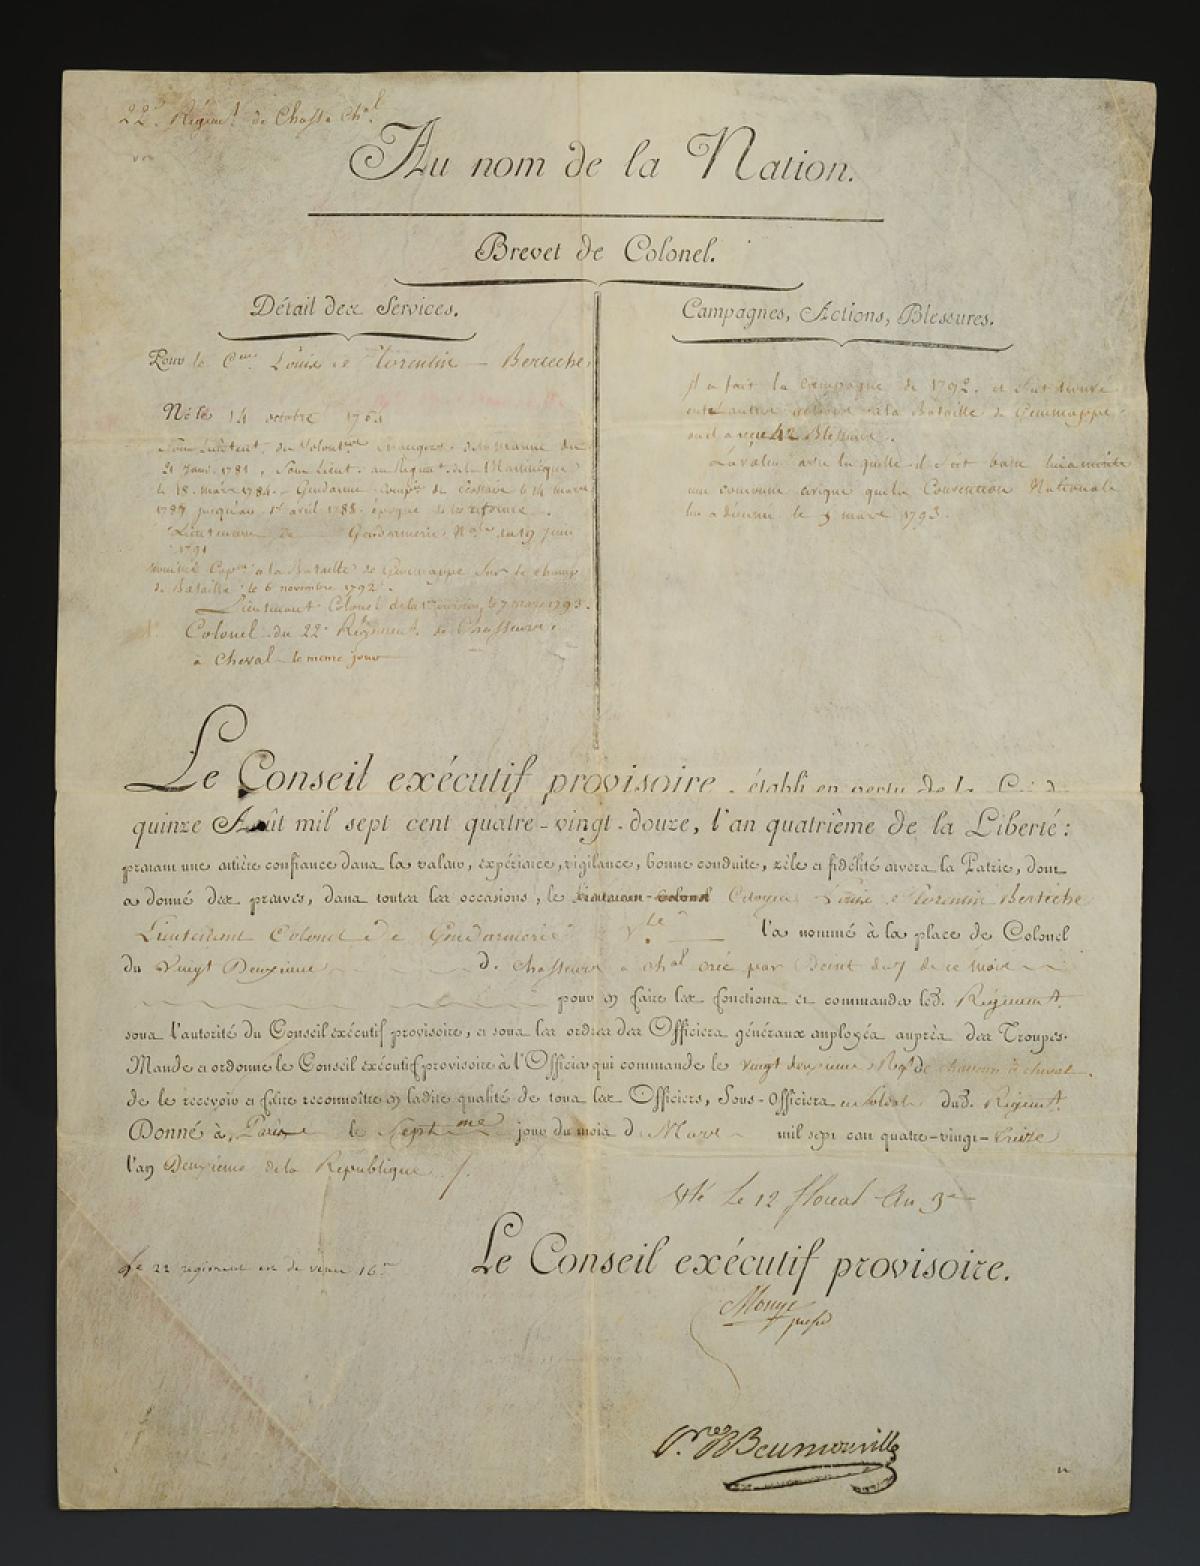 22e Régimt de Chasse Chal
Au nom de la Nation.
Brevet de Colonel.
Détail des Services.
Pour le Cen Louis Florentin — Berteche
Né le 14 octobre 1764
Sous Lieutent de Volontres de la marine du
21 Janv. 1781, Sous Lieut. au Régimt de la Martinique
le 18 mars 1784. Gendarme Compie de écossaise le 14 mars
jusqu'au 1er avril 1788. époque de la réforme.
Lieutenant de Gendarmerie Nale 19 Juin
1791
nommé Capne a la Bataille de Gemmappe Sur le champ
de Bataille le 6 novembre 1792.
Lieutenant Colonel de la 1re division, le 7 mars 1793.
Colonel du 22e Régiment de Chasseurs
à Cheval le meme jour
Campagnes, Actions, Blessures.
il a fait la campagne de 1792. et s'est trouvé
entr'autres actions a la Bataille de Gemmappe
ou il a reçu 42 Blessures.
La valeur avec laquelle il s'est battu lui a mérité
une couronne civique que la Convention Nationale
lui a décerné le mars 1793.
Le Conseil exécutif provisoire, établi en vertu de la Loi du
quinze Août mil sept cent quatre-vingt-douze, l'an quatrième de la Liberté:
prenant une entière confiance dans la valeur, expérience, vigilance, bonne conduite, zèle et fidélité envers la Patrie, dont
a donné des preuves, dans toutes les occasions, le Lieutenant-Colonel Citoyen Louis Florentin Berteche
Lieutenant Colonel de Gendarmerie l'a nommé à la place de Colonel
du Vingt Deuxieme d. Chasseurs a chal créé par Décret du 7 de ce mois
pour en faire les fonctions et commander led. Régiment.
sous l'autorité du Conseil exécutif provisoire, et sous les ordres des Officiers généraux employés auprès des Troupes.
Mande et ordonne le Conseil exécutif provisoire à l'Officier qui commande le vingt deuxieme Regt de chasseurs à cheval.
de le recevoir et faire reconnoître en ladite qualité de tous les Officiers, Sous-Officiers et Soldats dud. Régiment.
Donné à Paris le Septme jour du mois d. Mars mil sept cent quatre-vingt-treize
l'an Deuxieme de la République
le 12 floreal An 3e
Le 22 régiment est devenu 16me
Le Conseil exécutif provisoire.
Monge
Beurnonville